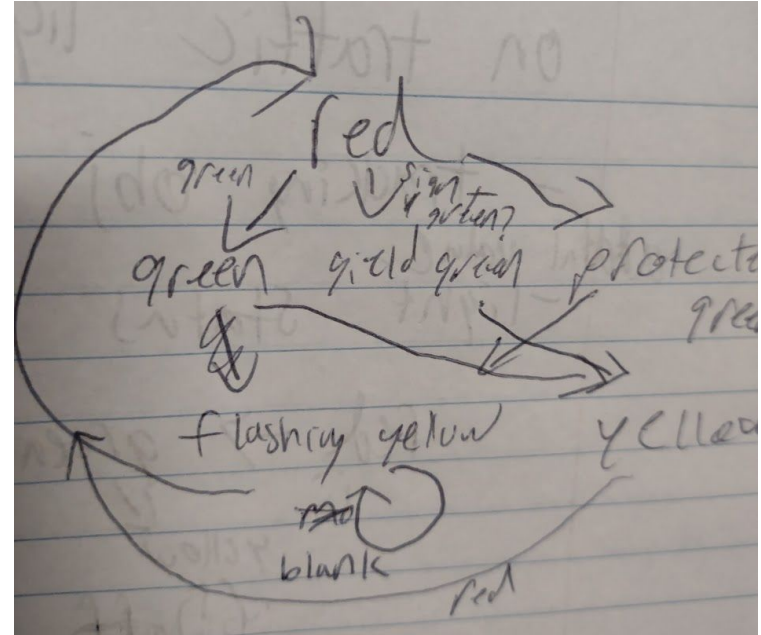 red
green
sign
green?
green yield green protecte
gree
flashing yellow yello
blank
red